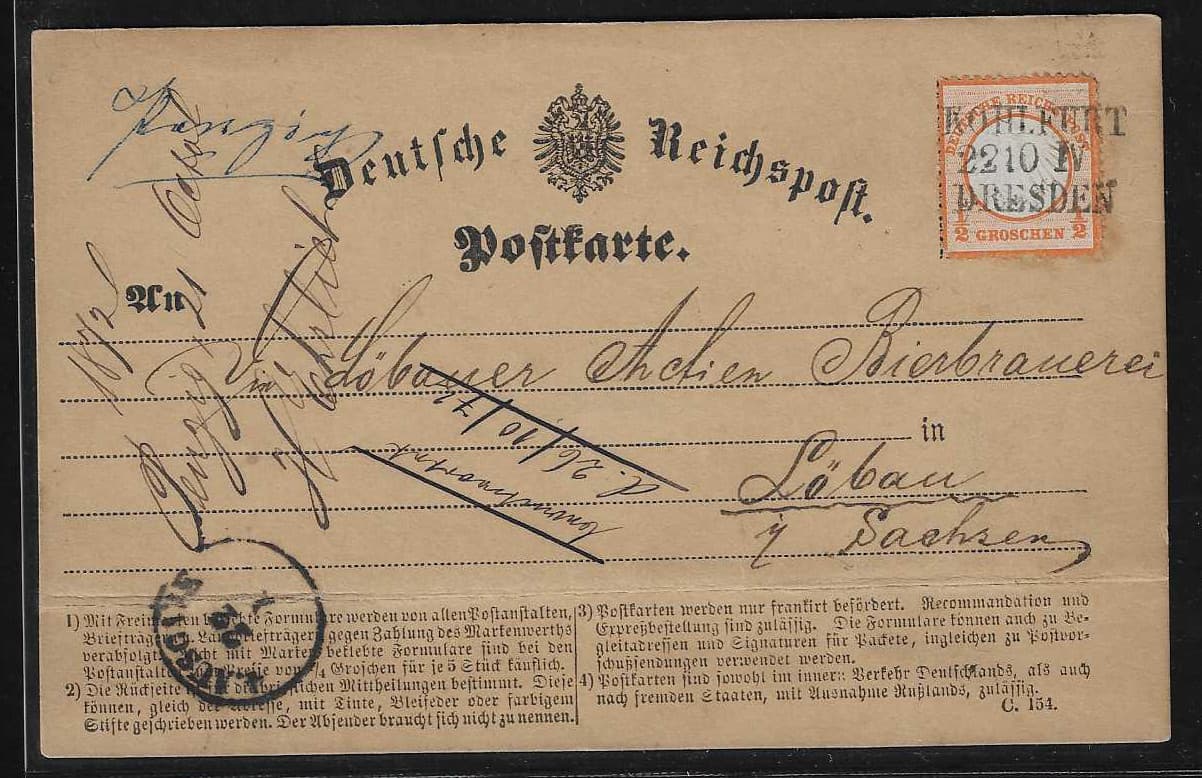 Deutsche Reichspost.
Postkarte.
DEUTSCHE REICHS-POST
1/2 GROSCHEN 1/2
KOHLFURT
22 10 IV
DRESDEN
Penzig
Penzig 21 October
1872
An
die Löbauer Actien Bierbrauerei
in
Löbau
i/ Sachsen
beantwortet
d. 26/10/72
1) Mit Freimarken beklebte Formulare werden von allen Postanstalten,
Briefträgern, Landbriefträgern gegen Zahlung des Markenwerths
verabfolgt. Nicht mit Marken beklebte Formulare sind bei den
Postanstalten zum Preise von 1/4 Groschen für je 5 Stück käuflich.
2) Die Rückseite ist zu den brieflichen Mittheilungen bestimmt. Diese
können, gleich der Adresse, mit Tinte, Bleifeder oder farbigem
Stifte geschrieben werden. Der Absender braucht sich nicht zu nennen.
3) Postkarten werden nur frankirt befördert. Recommandation und
Expreßbestellung sind zulässig. Die Formulare können auch zu Be-
gleitadressen und Signaturen für Packete, ingleichen zu Postvor-
schußsendungen verwendet werden.
4) Postkarten sind sowohl im innern Verkehr Deutschlands, als auch
nach fremden Staaten, mit Ausnahme Rußlands, zulässig.
C. 154.